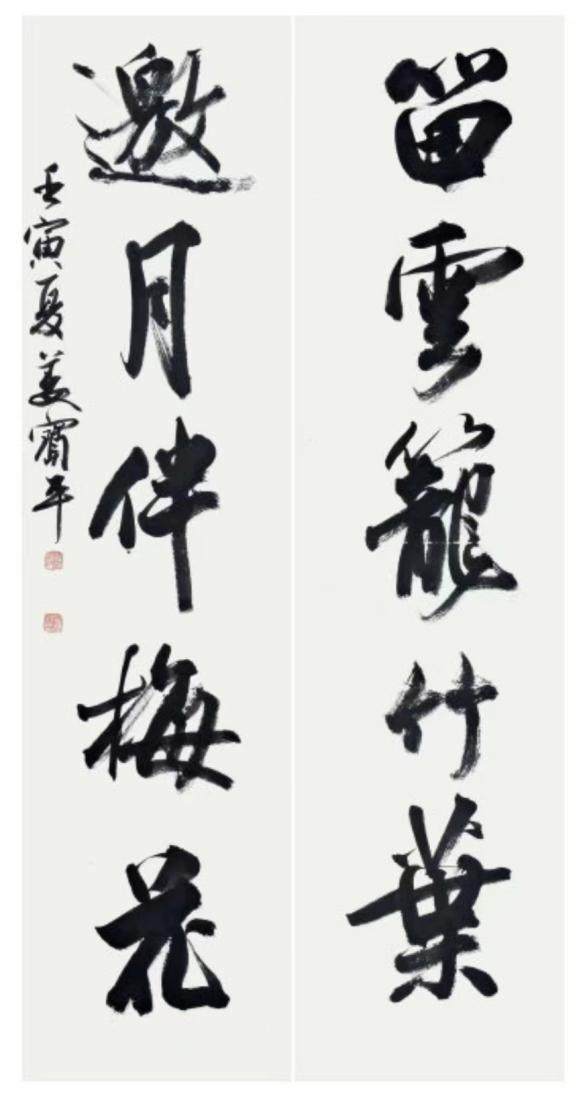 留雲籠竹葉
邀月伴梅花
壬寅夏姜寶平